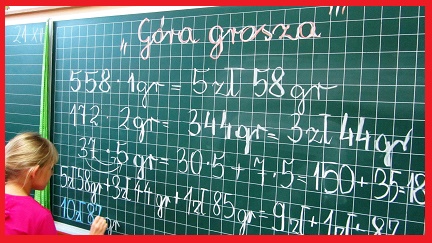 „Góra grosza"
558 · 1gr = 5zł 58gr
172 · 2gr = 344gr = 3zł 44gr
37 · 5gr = 30·5 + 7·5 = 150+35=18
5zł58gr+3zł44gr+1zł85gr=9zł+1zł+87
10zł87gr